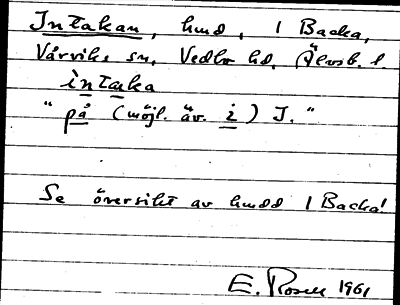 Intakan, hmd, 1 Backa,
Vårviks sn, Vedbo hd, Älvsb. l.
intaka
"på (möjl. äv. i) I."
Se översikt av hmdd 1 Backa!
E. Rosell 1961